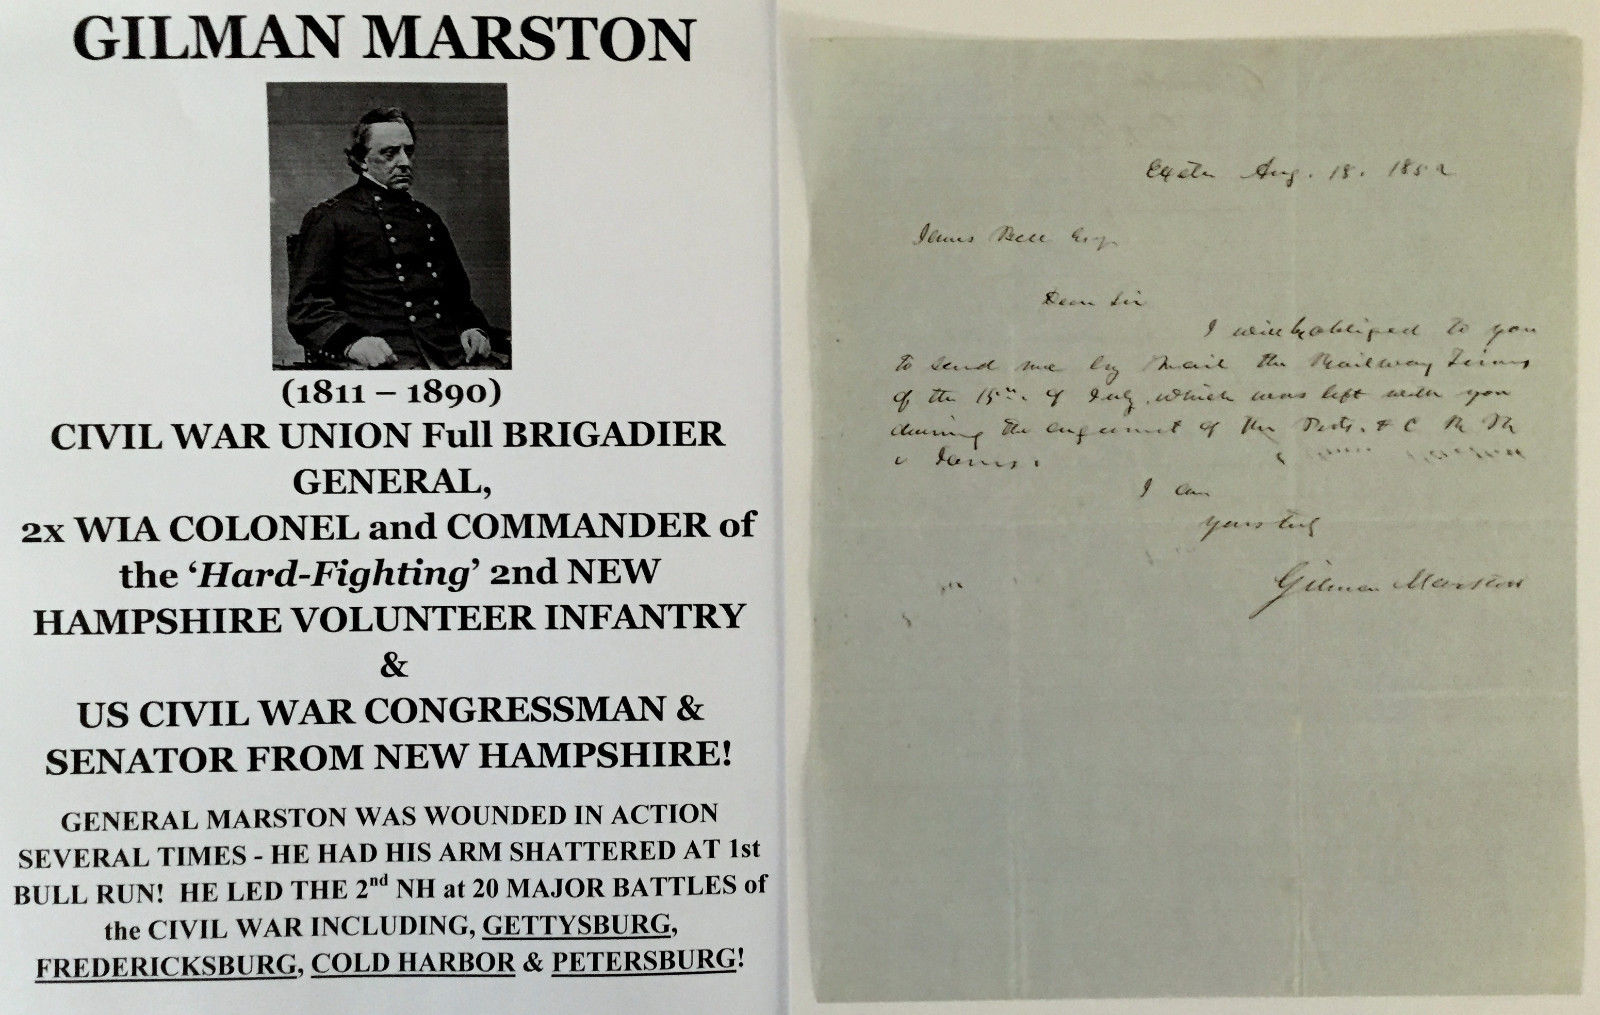 GILMAN MARSTON
(1811 – 1890)
CIVIL WAR UNION Full BRIGADIER
GENERAL,
2x WIA COLONEL and COMMANDER of
the ‘Hard-Fighting’ 2nd NEW
HAMPSHIRE VOLUNTEER INFANTRY
&
US CIVIL WAR CONGRESSMAN &
SENATOR FROM NEW HAMPSHIRE!
GENERAL MARSTON WAS WOUNDED IN ACTION
SEVERAL TIMES - HE HAD HIS ARM SHATTERED AT 1st
BULL RUN! HE LED THE 2nd NH at 20 MAJOR BATTLES of
the CIVIL WAR INCLUDING, GETTYSBURG,
FREDERICKSBURG, COLD HARBOR & PETERSBURG!
Exeter Aug. 18. 1852
James Bell Esq.
Dear Sir
I will be obliged to you
to send me by mail the Railway Times
of the 15th. of July which was left with you
during the argument of the & C R R
v
I am
Yours truly
Gilman Marston